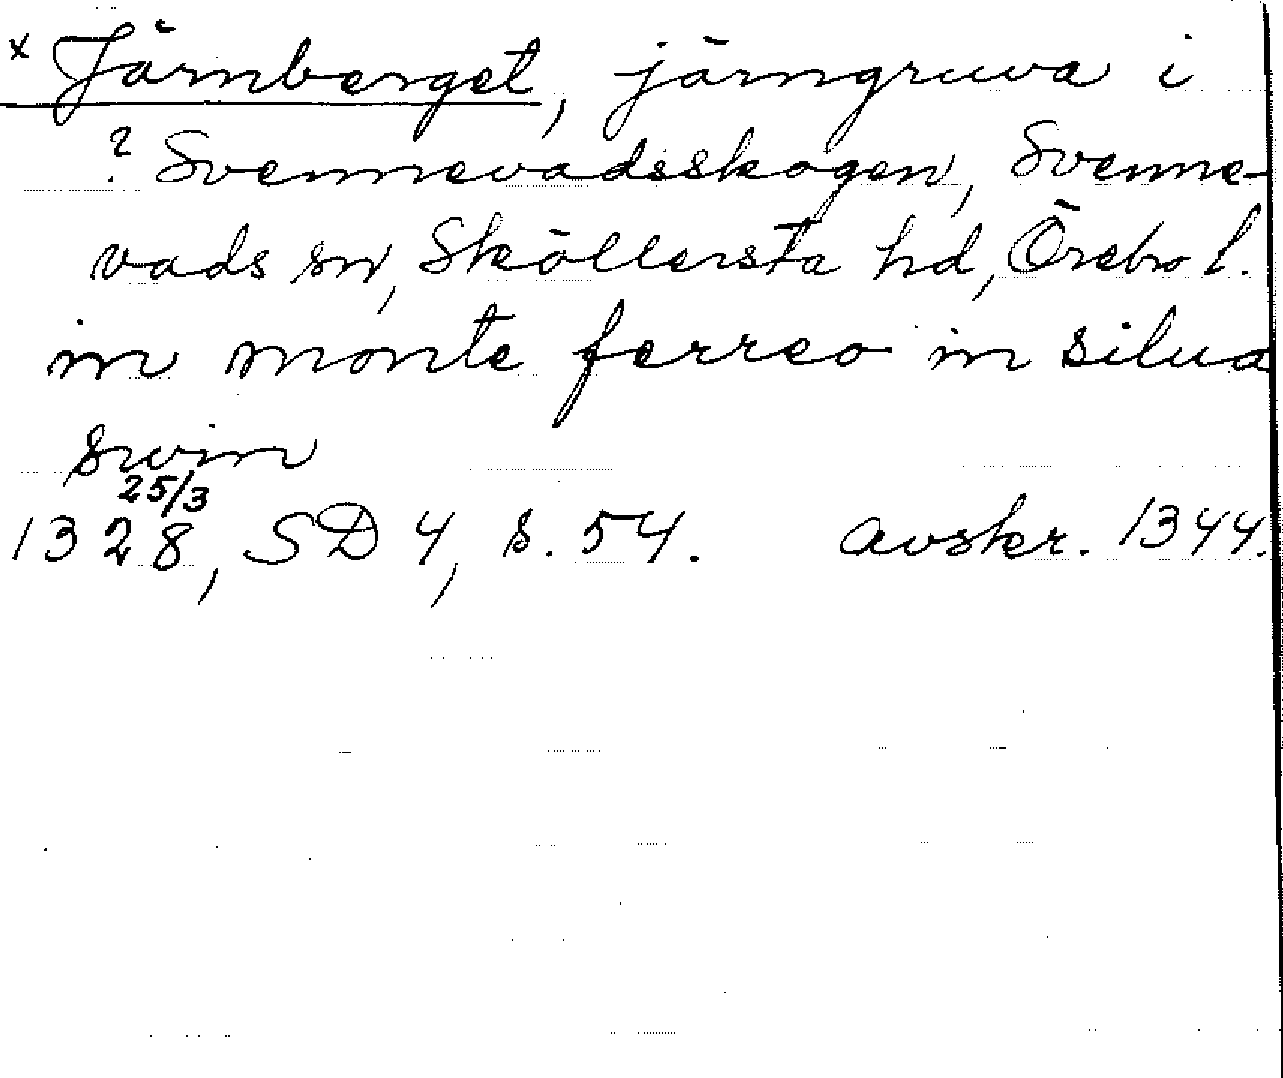 x Järnberget, järngruva i
? Svennevadsskogen, Svenne-
vads sn, Sköllersta hd, Örebro l.
in monte ferreo in silua
swin
25/3
1328, SD 4, s. 54. avskr. 1344.